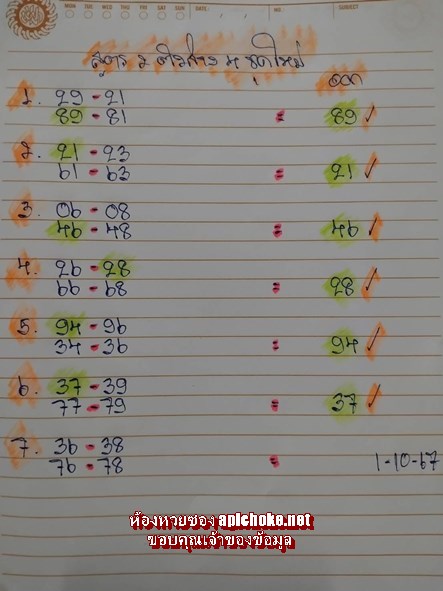 MON TUE WED THU FRI SAT SUN DATE : / / NO : SUBJECT
สูตร 2 ตัวล่าง 4 ชุดใหม่
ออก
1. 29 - 21
89 - 81 = 89 ✓
2. 21 - 23
61 - 63 = 21 ✓
3. 06 - 08
46 - 48 = 46 ✓
4. 26 - 28
66 - 68 = 28 ✓
5. 94 - 96
34 - 36 = 94 ✓
6. 37 - 39
77 - 79 = 37 ✓
7. 36 - 38
76 - 78 = 1-10-67
ห้องหวยซอง apichoke.net
ขอบคุณเจ้าของข้อมูล